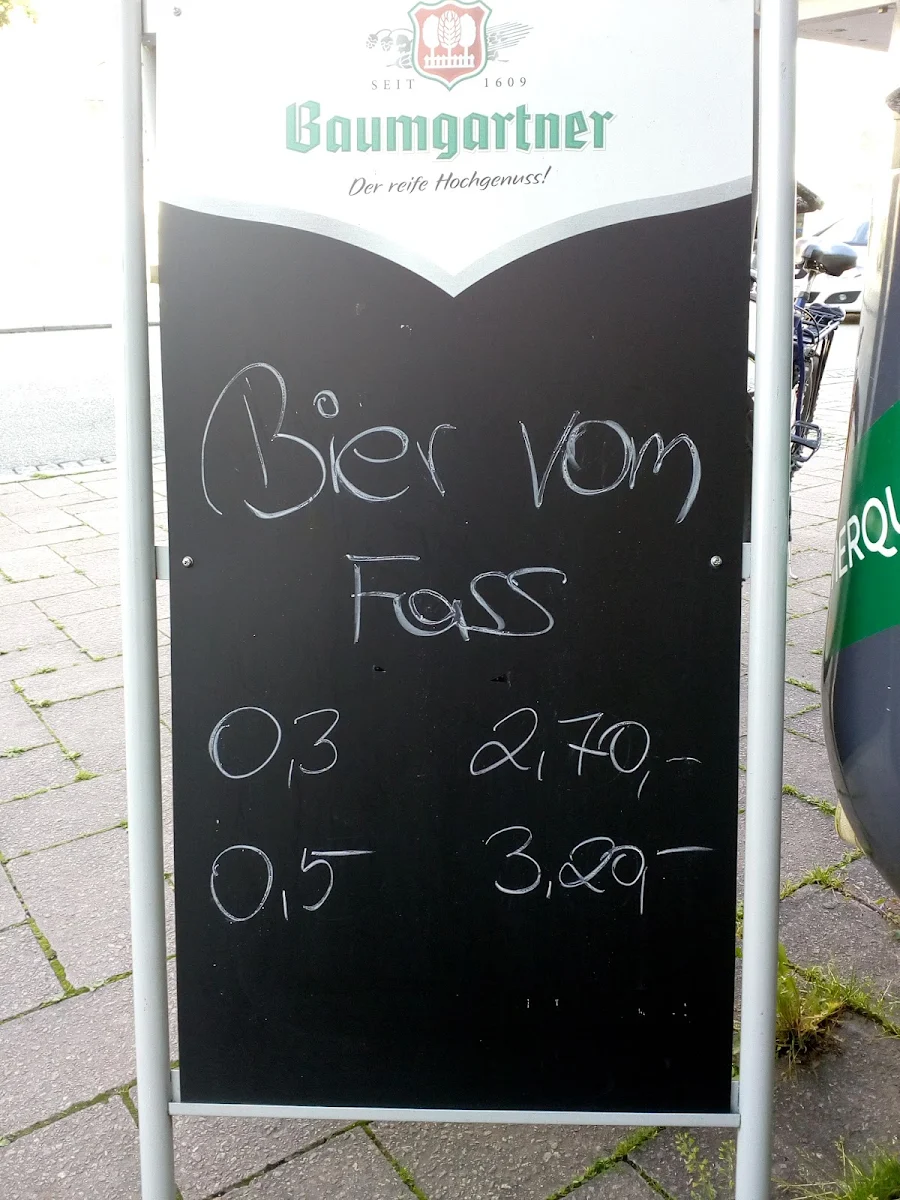 SEIT 1609
Baumgartner
Der reife Hochgenuss!
Bier vom
Fass
0,3 2,70,-
0,5 3,20,-
ERQU